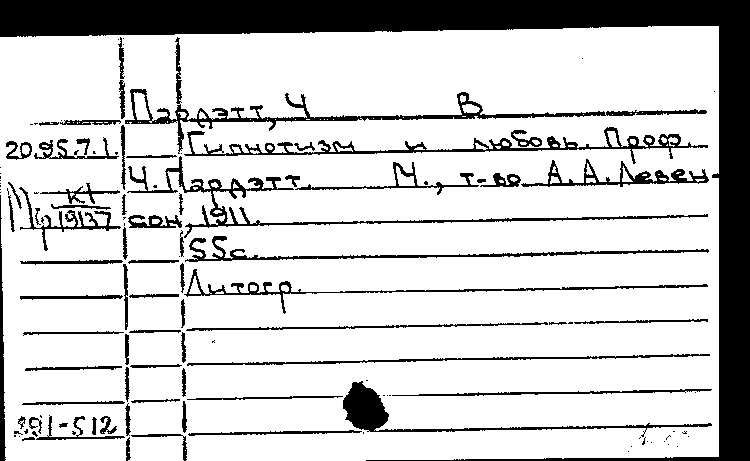 Пардэтт, Ч В
20.95.7.1. Гипнотизм и любовь. Проф.
Ч. Пардэтт. М., т-во А. А. Левен-
К1
19137 сон, 1911.
55с.
Литогр.
291-512